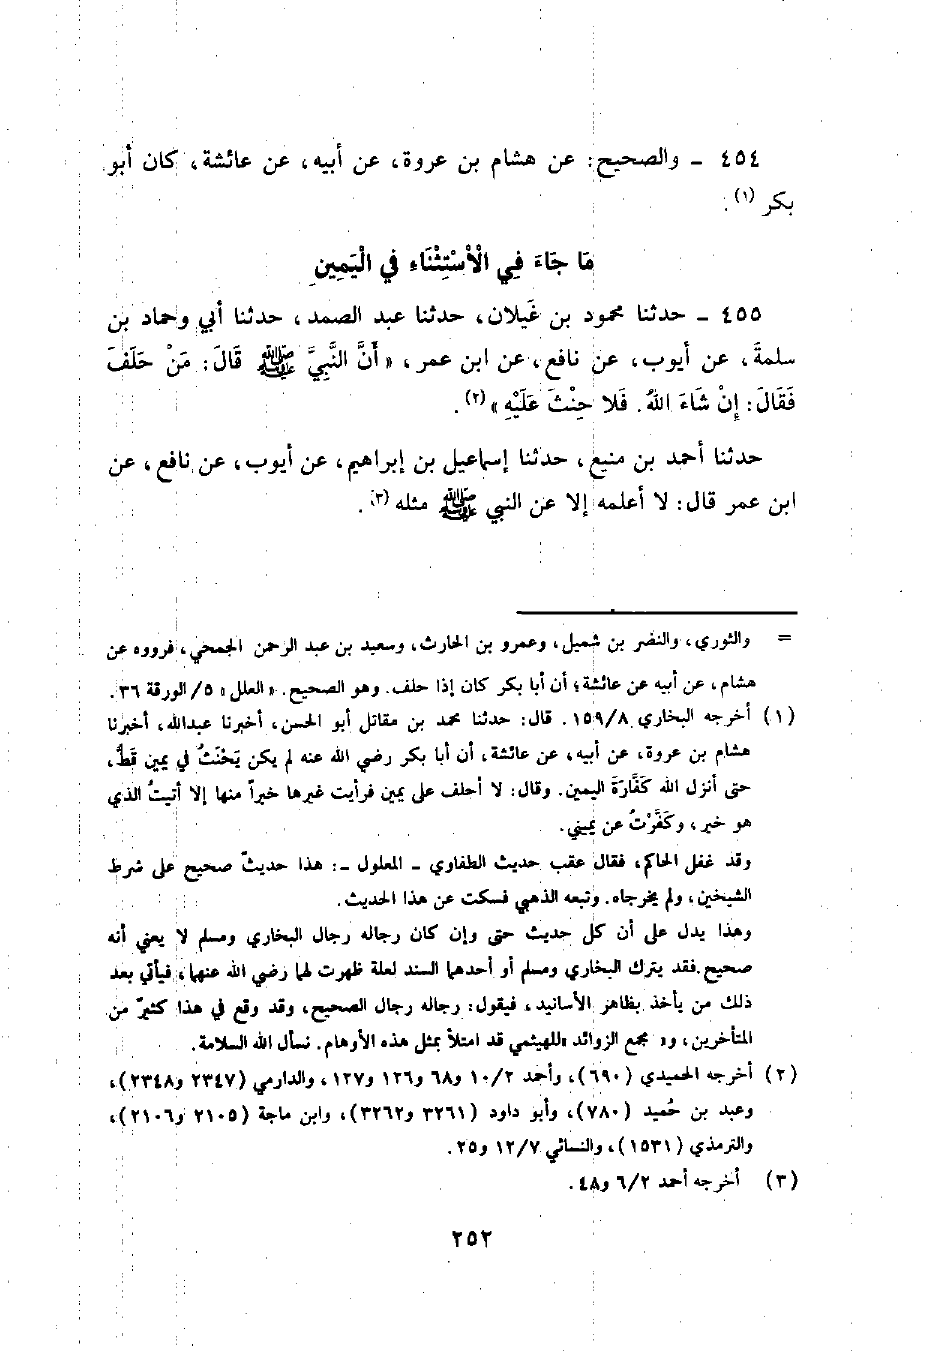 ٤٥٤ ـ والصحيح: عن هشام بن عروة، عن أبيه، عن عائشة، كان أبو
بكر (١).
مَا جَاءَ فِي الْأسْتِثْنَاءِ فِي الْيَمِينِ
٤٥٥ ـ حدثنا محمود بن غَيلان، حدثنا عبد الصمد، حدثنا أبي وحماد بن
سلمةَ، عن أيوب، عن نافع، عن ابن عمر، « أَنَّ النَّبِيَّ ﷺ قَالَ: مَنْ حَلَفَ
فَقَالَ: إِنْ شَاءَ اللهُ. فَلا حِنْثَ عَلَيْهِ » (٢).
حدثنا أحمد بن منيع، حدثنا إسماعيل بن إبراهيم، عن أيوب، عن نافع، عن
ابن عمر قال: لا أعلمه إلا عن النبي ﷺ مثله (٣).
= والثوري، والنضر بن شميل، وعمرو بن الحارث، وسعيد بن عبد الرحمن الجمحي، فرووه عن
هشام، عن أبيه عن عائشة؛ أن أبا بكر كان إذا حلف. وهو الصحيح. « العلل » ٥/ الورقة ٣٦.
(١) أخرجه البخاري ١٥٩/٨. قال: حدثنا محمد بن مقاتل أبو الحسن، أخبرنا عبدالله، أخبرنا
هشام بن عروة، عن أبيه، عن عائشة، أن أبا بكر رضي الله عنه لم يكن يَحْنَثُ في يمين قَطُّ،
حتى أنزل الله كَفَّارَةَ اليمين. وقال: لا أحلف على يمين فرأيت غيرها خيراً منها إلا أتيتُ الذي
هو خير، وكَفَّرْتُ عن يميني.
وقد غفل الحاكم، فقال عقب حديث الطفاوي ـ المعلول ـ: هذا حديثٌ صحيح على شرط
الشيخين، ولم يخرجاه. وتبعه الذهبي فسكت عن هذا الحديث.
وهذا يدل على أن كل حديث حتى وإن كان رجاله رجال البخاري ومسلم لا يعني أنه
صحيح. فقد يترك البخاري ومسلم أو أحدهما السند لعلة ظهرت لهما رضي الله عنهما، فيأتي بعد
ذلك من يأخذ بظاهر الأسانيد، فيقول: رجاله رجال الصحيح، وقد وقع في هذا كثيرٌ من
المتأخرين، و« مجمع الزوائد » للهيثمي قد امتلأ بمثل هذه الأوهام. نسأل الله السلامة.
(٢) أخرجه الحميدي (٦٩٠)، وأحمد ١٠/٢ و٦٨ و١٢٦ و١٢٧، والدارمي (٢٣٤٧ و٢٣٤٨)،
وعبد بن حُميد (٧٨٠)، وأبو داود (٣٢٦١ و٣٢٦٢)، وابن ماجة (٢١٠٥ و٢١٠٦)،
والترمذي (١٥٣١)، والنسائي ١٢/٧ و٢٥.
(٣) أخرجه أحمد ٦/٢ و٤٨.
٢٥٢